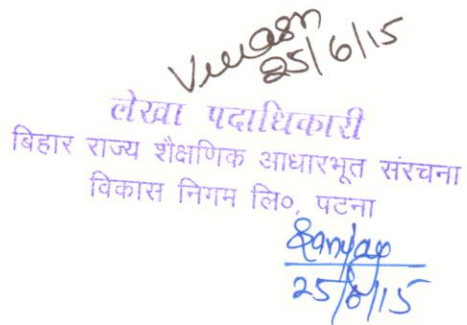 25/6/15
लेखा पदाधिकारी
बिहार राज्य शैक्षणिक आधारभूत संरचना
विकास निगम लि०, पटना
Sanjay
25/6/15